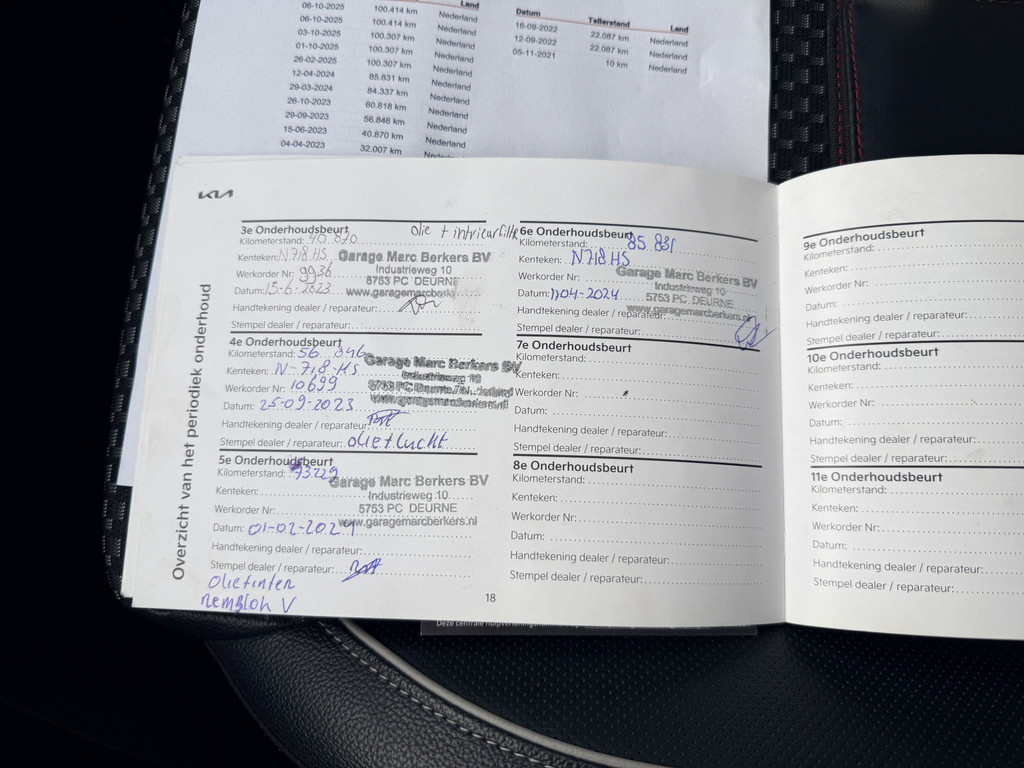 Land
06-10-2025 100.414 km Nederland
06-10-2025 100.414 km Nederland
03-10-2025 100.307 km Nederland
01-10-2025 100.307 km Nederland
26-02-2025 100.307 km Nederland
12-04-2024 85.831 km Nederland
29-03-2024 84.337 km Nederland
26-10-2023 60.818 km Nederland
29-09-2023 56.846 km Nederland
15-06-2023 40.870 km Nederland
04-04-2023 32.007 km
Datum Tellerstand Land
16-09-2022 22.087 km Nederland
12-09-2022 22.087 km Nederland
05-11-2021 10 km Nederland
KIA
Overzicht van het periodiek onderhoud
3e Onderhoudsbeurt olie + intrieurfilter
Kilometerstand: 40 870
Kenteken: N718HS
Werkorder Nr: 9936
Datum: 15-6-2023
Handtekening dealer / reparateur:
Stempel dealer / reparateur:
Garage Marc Berkers BV
Industrieweg 10
5753 PC DEURNE
www.garagemarcberkers
4e Onderhoudsbeurt
Kilometerstand: 56 846
Kenteken: N-718-HS
Werkorder Nr: 10699
Datum: 25-09-2023
Handtekening dealer / reparateur:
Stempel dealer / reparateur: olie+lucht
Garage Marc Berkers BV
Industrieweg 10
5753 PC Deurne
www.garagemarcberkers.nl
5e Onderhoudsbeurt
Kilometerstand: 73229
Kenteken:
Werkorder Nr:
Datum: 01-02-2024
Handtekening dealer / reparateur:
Stempel dealer / reparateur:
Garage Marc Berkers BV
Industrieweg 10
5753 PC DEURNE
www.garagemarcberkers.nl
olie+inter
remblok V
6e Onderhoudsbeurt
Kilometerstand: 85 831
Kenteken: N718HS
Werkorder Nr:
Datum: 04-2024
Handtekening dealer / reparateur:
Stempel dealer / reparateur:
Garage Marc Berkers BV
Industrieweg 10
5753 PC DEURNE
www.garagemarcberkers.nl
7e Onderhoudsbeurt
Kilometerstand:
Kenteken:
Werkorder Nr:
Datum:
Handtekening dealer / reparateur:
Stempel dealer / reparateur:
8e Onderhoudsbeurt
Kilometerstand:
Kenteken:
Werkorder Nr:
Datum:
Handtekening dealer / reparateur:
Stempel dealer / reparateur:
18
9e Onderhoudsbeurt
Kilometerstand:
Kenteken:
Werkorder Nr:
Datum:
Handtekening dealer / reparateur:
Stempel dealer / reparateur:
10e Onderhoudsbeurt
Kilometerstand:
Kenteken:
Werkorder Nr:
Datum:
Handtekening dealer / reparateur:
Stempel dealer / reparateur:
11e Onderhoudsbeurt
Kilometerstand:
Kenteken:
Werkorder Nr:
Datum:
Handtekening dealer / reparateur:
Stempel dealer / reparateur:
Deze centrale